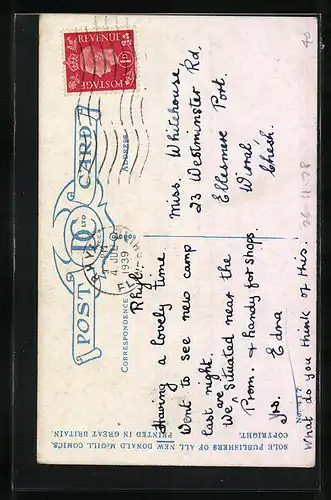 POST CARD
D Ltd
CORRESPONDENCE
ADDRESS
POSTAGE
REVENUE
1D
RHYL
4 JUL
1939
Rhyl.
Having a lovely time
Went to see new camp
last night.
We are Situated near the
Prom. & handy for shops.
Yrs. Edna
What do you think of this.
Miss. Whitehouse,
23 Westminster Rd,
Ellesmere Port.
Wirral
Chesh.
26-11-78
40
SOLE PUBLISHERS OF ALL NEW DONALD McGILL COMICS.
PRINTED IN GREAT BRITAIN.
COPYRIGHT.